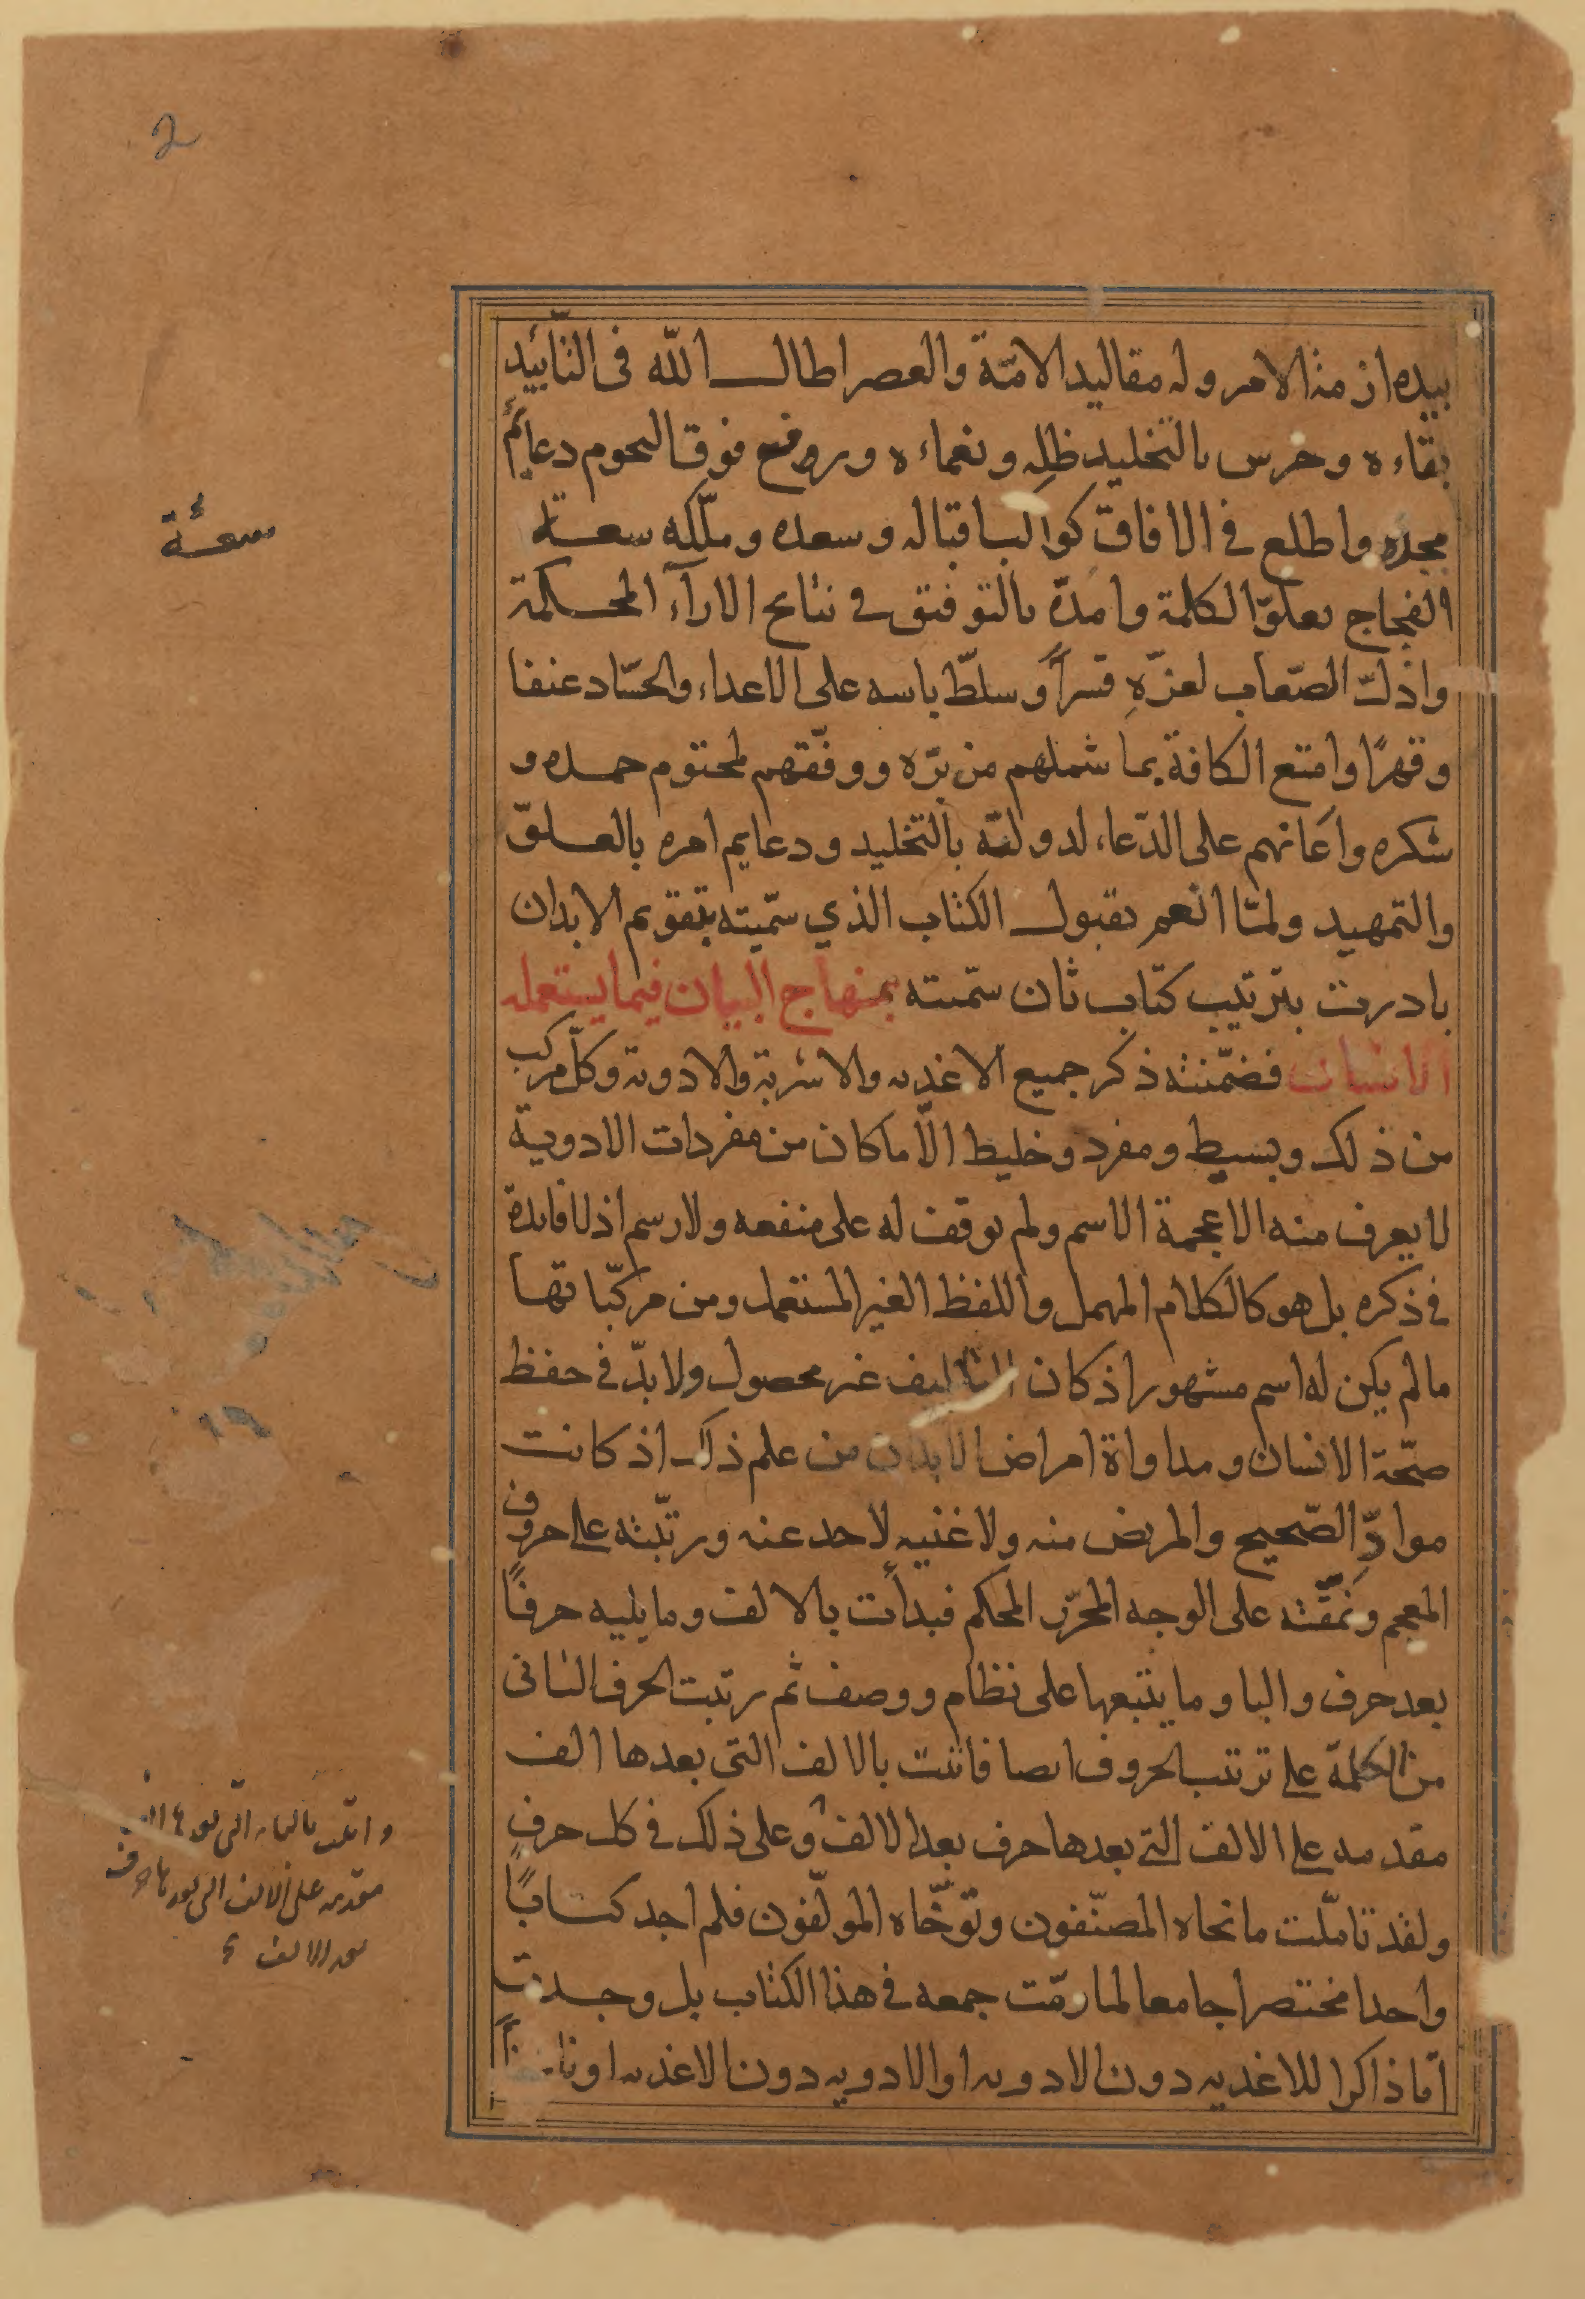 2
بيده ازمة الامر وله مقاليد الامّة والعصر اطال الله فى التأييد
بقاءه وحرس بالتخليد ظله ونعماءه ورفع فوق النجوم دعائم
مجده واطلع في الافاق كواكب اقباله وسعده وملّكه سعة
سعة
الفجاج بعلوّ الكلمة وامدّه بالتوفيق في نتائج الارآء المحكمة
واذلّ الصّعاب لعزّهِ قسراً وسلّط باسه على الاعداء والحسّاد عنفا
وقهرًا وامتع الكافة بما شملهم من برّه ووفّقهم لمحتوم حمده و
شكره واعانهم على الدّعاء لدولته بالتخليد ودعايم امره بالعلوّ
والتمهيد ولمّا انعم بقبول الكتاب الذي سمّيته بتقويم الابدان
بادرت بترتيب كتاب ثان سمّيته بمنهاج البيان فيما يستعمله
الانسان فضمّنته ذكر جميع الاغديه والاشربة والادوية وكلّ مركب
من ذلك وبسيط ومفرد وخليط الّا ما كان من مفردات الادوية
لا يعرف منه الا عجمة الاسم ولم يوقف له على منفعه ولا رسم اذ لا فايدة
في ذكره بل هو كالكلام المهمل واللفظ الغير المستعمل ومن مركّباتها
ما لم يكن له اسم مشهور اذ كان التاليف غير محصول ولا بدّ في حفظ
صحّة الانسان ومداواة امراض الابدان من علم ذلك اذ كانت
موادّ الصّحيح والمريض منه ولا غنيه لاحد عنه ورتّبته على حروف
المعجم ونمّقته على الوجه المحرّر المحكم فبدأت بالالف وما يليه حرفًا
بعد حرف والبا وما يتبعها على نظام ووصف ثم رتبت الحرف الثانى
من الكلمة على ترتيب الحروف ايضا فاتيت بالالف التى بعدها الف
مقدمه على الالف التى بعدها حرف بعد الالف وعلى ذلك في كل حرفٍ
واتيت بالباء التى بعدها الف
مقدمه على الالف التى بعدها حرف
بعد الالف
ولقد تاملّت ما نحاه المصنّفون وتوخّاه المولّفون فلم اجد كتابًا
واحدا مختصرا جامعا لما رمّت جمعه في هذا الكتاب بل وجدت
امّا ذاكرا للاغديه دون الادويه او الادويه دون الاغديه او